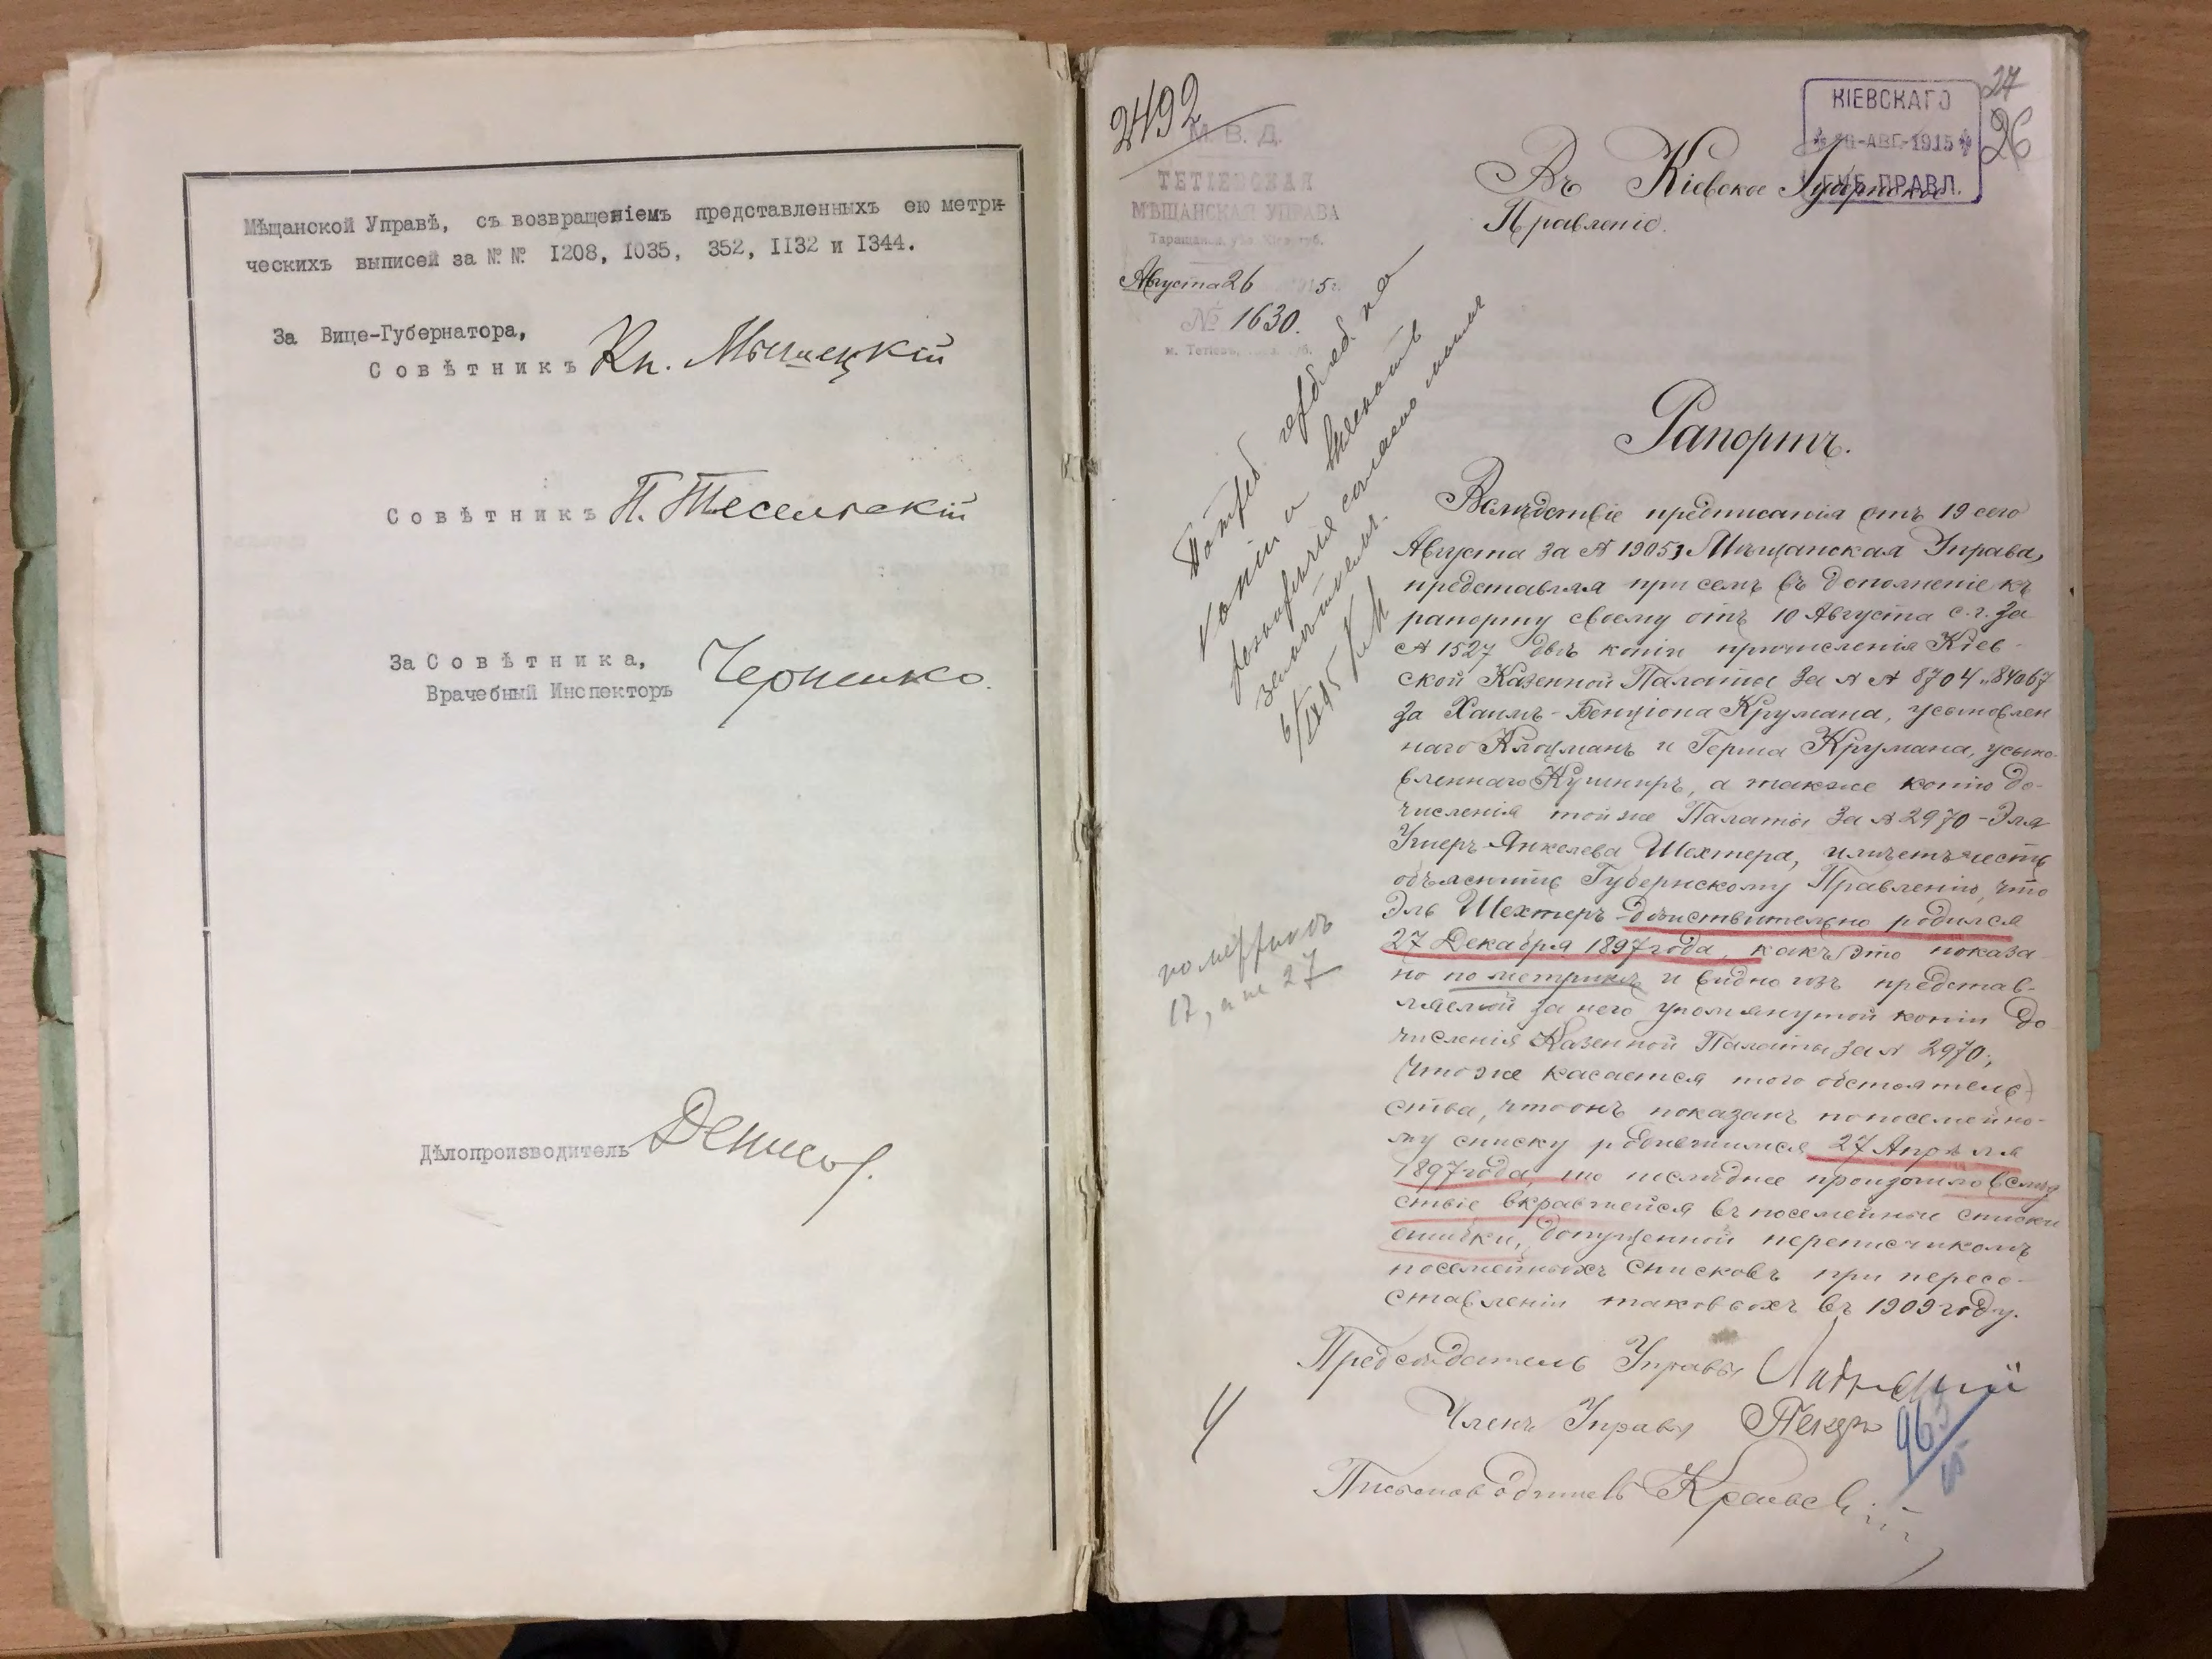 Мѣщанской Управѣ, съ возвращеніемъ представленныхъ ею метри-
ческихъ выписей за №№ 1208, 1035, 352, 1132 и 1344.
За Вице-Губернатора,
Совѣтникъ Кн. Мышецкій
Совѣтникъ П.
За Совѣтника,
Врачебный Инспекторъ
Дѣлопроизводитель
2492
М. В. Д.
ТЕТІЕВСКАЯ
МѢЩАНСКАЯ УПРАВА
Таращан. уѣз. Кіев. губ.
Августа 26 1915 г.
№ 1630.
м. Тетіевъ, губ.
КІЕВСКАГО
АВГ. 1915
ГУБ. ПРАВЛ.
27
26
Въ Кіевское Губернское
Правленіе.
Рапортъ.
Вслѣдствіе предписанія отъ 19 сего
Августа за № 19053 Мѣщанская Управа,
представляя при семъ въ дополненіе къ
рапорту своему отъ 10 Августа с.г. за
№ 1527 двѣ копіи причисленія Кіев-
ской Казенной Палаты за №№ 8704 и 84067
за Хаимъ-Бенціона Крумана, усыновлен
наго Клоцманъ и Герша Крумана, усыно-
вленнаго Кушниръ, а также копію до-
численія той же Палаты за № 2970 - Эля
Ушеръ-Янкелева Шехтера, имѣетъ честь
объяснить Губернскому Правленію, что
Эль Шехтеръ дѣйствительно родился
27 Декабря 1897 года, какъ это показа-
но по метрикѣ и видно изъ представ-
ляемой за него упомянутой копіи до
численія Казенной Палаты за № 2970;
Что же касается того обстоятель-
ства, что онъ показанъ по посемейно-
му списку родившимся 27 Апрѣля
1897 года, то послѣднее произошло вслѣд
ствіе вкравшейся въ посемейные списки
ошибки, допущенной переписчикомъ
посемейныхъ списковъ при пересо-
ставленіи таковыхъ въ 1909 году.
Предсѣдатель Управы
Членъ Управы
Письмоводитель
копіи
17, а не 27
965